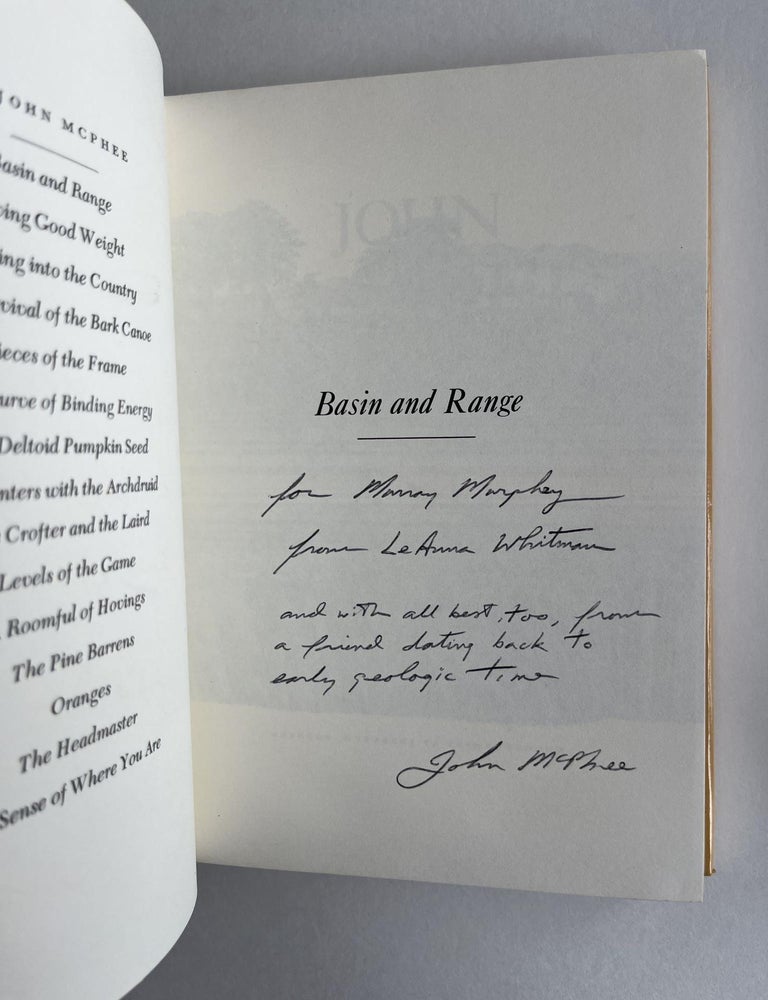 JOHN MCPHEE
asin and Range
ving Good Weight
ing into the Country
vival of the Bark Canoe
ieces of the Frame
urve of Binding Energy
Deltoid Pumpkin Seed
nters with the Archdruid
Crofter and the Laird
Levels of the Game
Roomful of Hovings
The Pine Barrens
Oranges
The Headmaster
Sense of Where You Are
JOHN
Basin and Range
for Murray Murphey
from LeAnna Whitman
and with all best, too, from
a friend dating back to
early geologic time
John McPhee